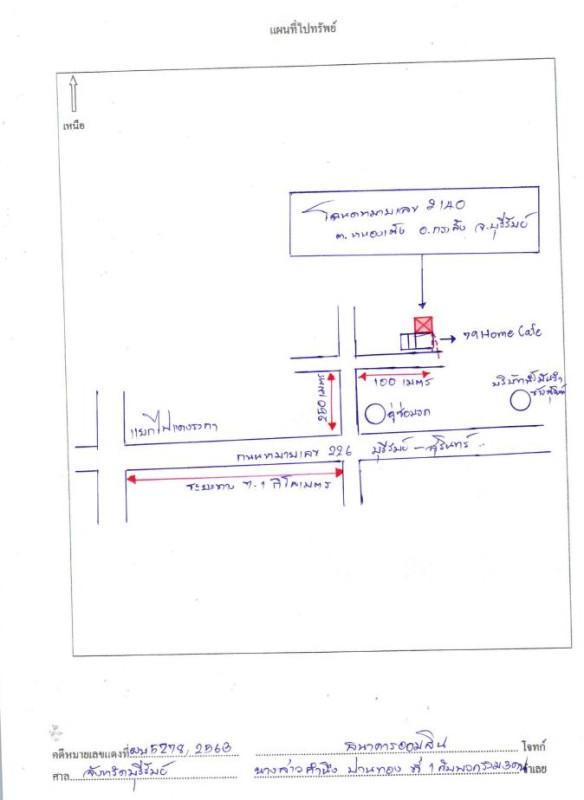 แผนที่ไปทรัพย์
เหนือ
โฉนดหมายเลข 2140
ต.หนองเต็ง อ.กระสัง จ.บุรีรัมย์
79 Home Cafe
100 เมตร
250 เมตร
อู่ซ่อมรถ
แยกไฟแดง
ถนนหมายเลข 226 บุรีรัมย์ - สุรินทร์
ระยะทาง 7.1 กิโลเมตร
คดีหมายเลขแดงที่ ผบ 5278/2563 ธนาคารออมสิน โจทก์
ศาล จังหวัดบุรีรัมย์ นางสาวคำนึง ปานทอง ที่ 1 กับพวกรวม 3 คน จำเลย